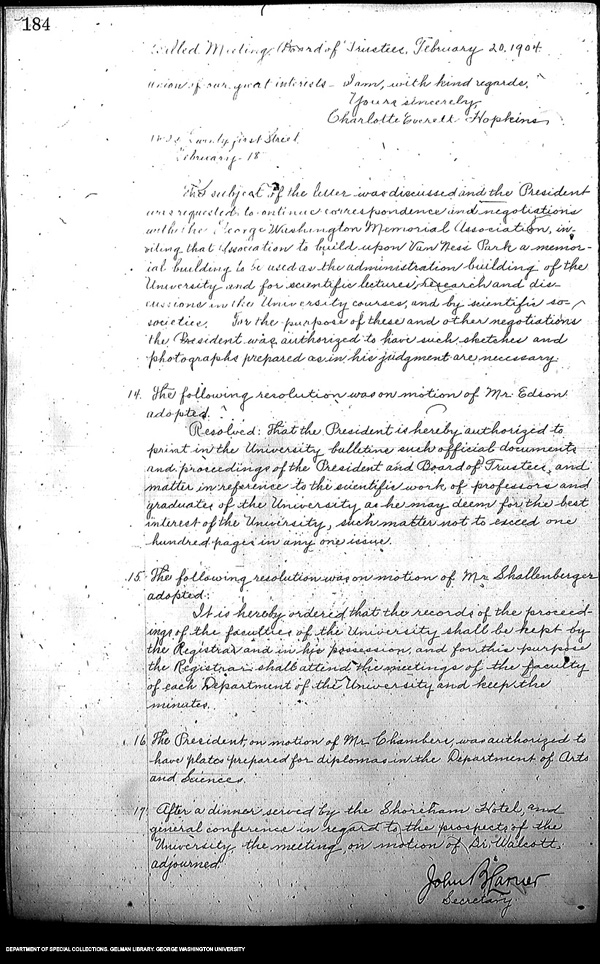 184
Called Meeting, Board of Trustees, February 20, 1904
union of our great interests – I am, with kind regards,
Yours sincerely,
Charlotte Everett Hopkins
Twenty first Street
February 18
The subject of the letter was discussed and the President
was requested to continue correspondence and negotiations
with the George Washington Memorial Association, in-
viting that Association to build upon Van Ness Park a memor-
ial building to be used as the administration building of the
University and for scientific lectures, research and dis-
cussions in the University courses, and by scientific so-
societies. For the purpose of these and other negotiations
the President was authorized to have such sketches and
photographs prepared as in his judgment are necessary.
14. The following resolution was on motion of Mr. Edson
adopted:
Resolved: That the President is hereby authorized to
print in the University bulletins such official documents
and proceedings of the President and Board of Trustees, and
matter in reference to the scientific work of professors and
graduates of the University as he may deem for the best
interest of the University, such matter not to exceed one
hundred pages in any one issue.
15. The following resolution was on motion of Mr. Shallenberger
adopted:
It is hereby ordered that the records of the proceed-
ings of the faculties of the University shall be kept by
the Registrar and in his possession, and for this purpose
the Registrar shall attend the meetings of the faculty
of each Department of the University and keep the
minutes.
16. The President, on motion of Mr. Chambers, was authorized to
have plates prepared for diplomas in the Department of Arts
and Sciences.
17. After a dinner served by the Shoreham Hotel, and
general conference in regard to the prospects of the
University, the meeting, on motion of Dr. Walcott,
adjourned.
John B Larner
Secretary
DEPARTMENT OF SPECIAL COLLECTIONS, GELMAN LIBRARY, GEORGE WASHINGTON UNIVERSITY